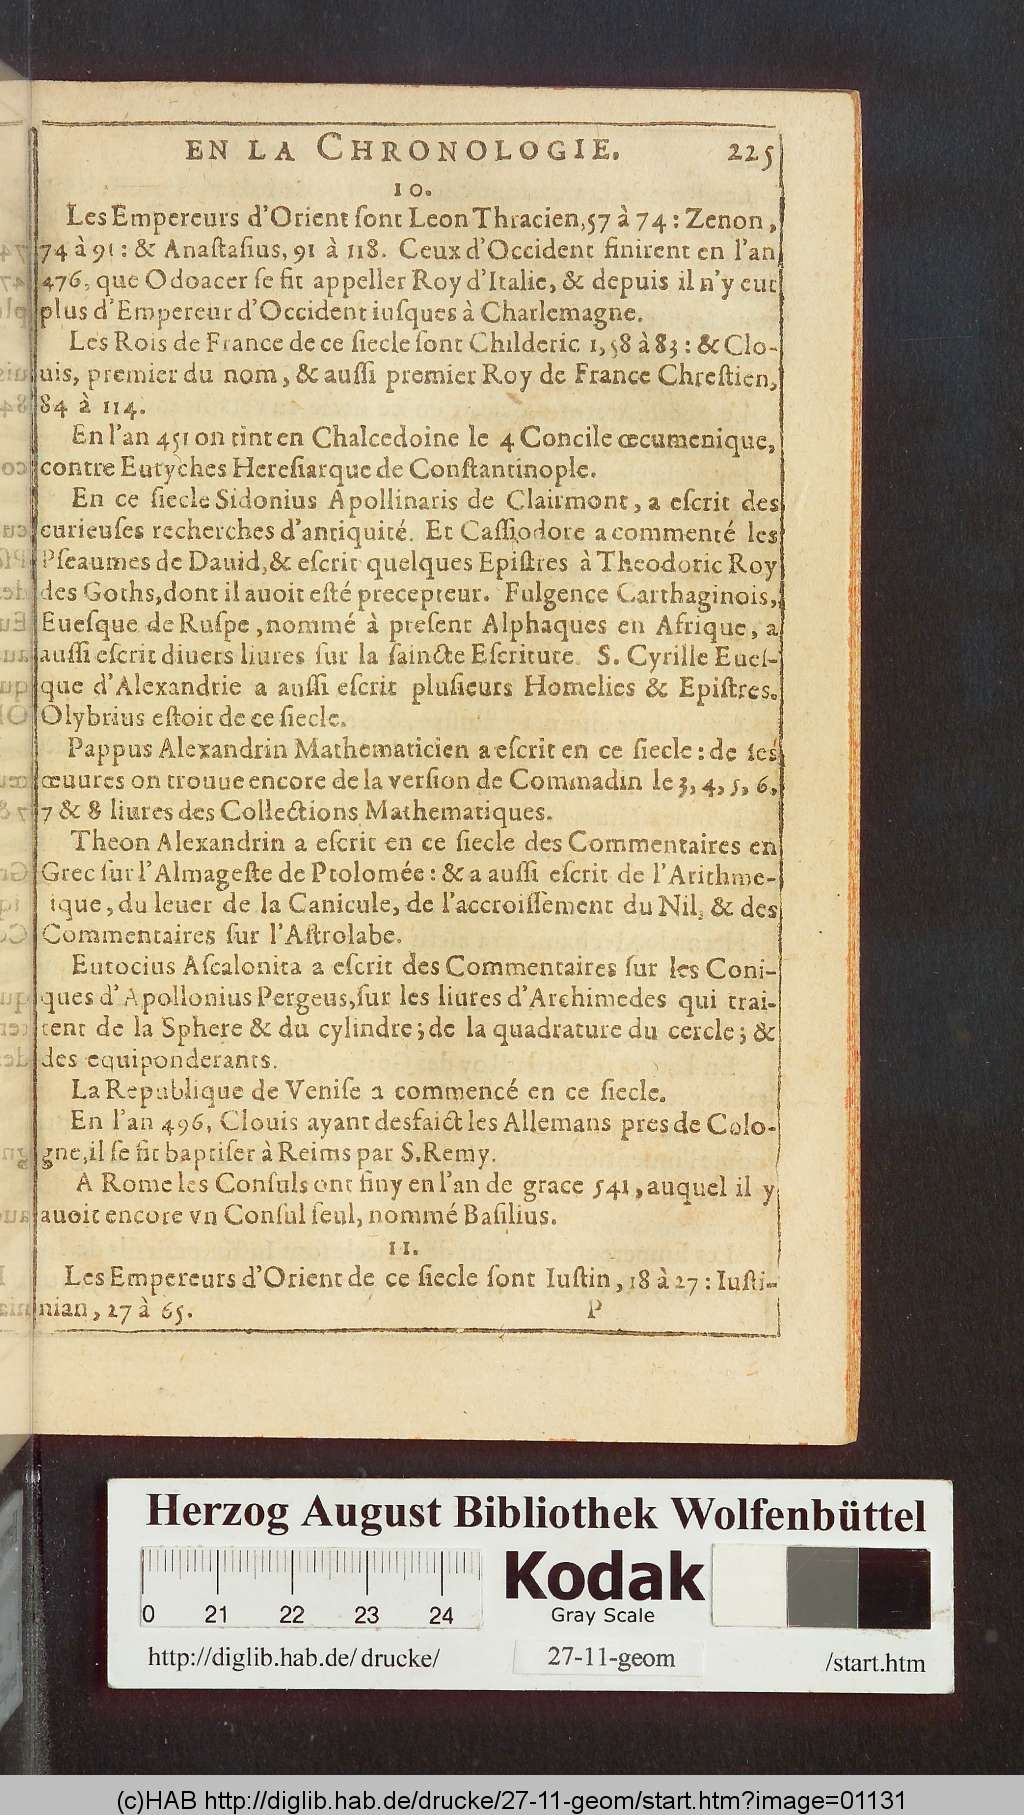 EN LA CHRONOLOGIE. 225
10.
Les Empereurs d'Orient ſont Leon Thracien, 57 à 74 : Zenon,
74 à 91 : & Anaſtaſius, 91 à 118. Ceux d'Occident finirent en l'an
476, que Odoacer ſe fit appeller Roy d'Italie, & depuis il n'y eut
plus d'Empereur d'Occident iuſques à Charlemagne.
Les Rois de France de ce ſiecle ſont Childeric 1, 58 à 83 : & Clo-
uis, premier du nom, & auſſi premier Roy de France Chreſtien,
84 à 114.
En l'an 451 on tint en Chalcedoine le 4 Concile œcumenique,
contre Eutyches Hereſiarque de Conſtantinople.
En ce ſiecle Sidonius Apollinaris de Clairmont, a eſcrit des
curieuſes recherches d'antiquité. Et Caſſiodore a commenté les
Pſeaumes de Dauid, & eſcrit quelques Epiſtres à Theodoric Roy
des Goths, dont il auoit eſté precepteur. Fulgence Carthaginois,
Eueſque de Ruſpe, nommé à preſent Alphaques en Afrique, a
auſſi eſcrit diuers liures ſur la ſaincte Eſcriture. S. Cyrille Eueſ-
que d'Alexandrie a auſſi eſcrit pluſieurs Homelies & Epiſtres.
Olybrius eſtoit de ce ſiecle.
Pappus Alexandrin Mathematicien a eſcrit en ce ſiecle : de ſes
œuures on trouue encore de la verſion de Commadin le 3, 4, 5, 6,
7 & 8 liures des Collections Mathematiques.
Theon Alexandrin a eſcrit en ce ſiecle des Commentaires en
Grec ſur l'Almageſte de Ptolomée : & a auſſi eſcrit de l'Arithme-
ique, du leuer de la Canicule, de l'accroiſſement du Nil, & des
Commentaires ſur l'Aſtrolabe.
Eutocius Aſcalonita a eſcrit des Commentaires ſur les Coni-
ques d'Apollonius Pergeus, ſur les liures d'Archimedes qui trai-
tent de la Sphere & du cylindre ; de la quadrature du cercle ; &
des equiponderants.
La Republique de Veniſe a commencé en ce ſiecle.
En l'an 496, Clouis ayant desfaict les Allemans pres de Colo-
gne, il ſe fit baptiſer à Reims par S. Remy.
A Rome les Conſuls ont finy en l'an de grace 541, auquel il y
auoit encore vn Conſul ſeul, nommé Baſilius.
11.
Les Empereurs d'Orient de ce ſiecle ſont Iuſtin, 18 à 27 : Iuſti-
nian, 27 à 65. P
Herzog August Bibliothek Wolfenbüttel
0 21 22 23 24
Kodak
Gray Scale
http://diglib.hab.de/ drucke/ 27-11-geom /start.htm
(c)HAB http://diglib.hab.de/drucke/27-11-geom/start.htm?image=01131